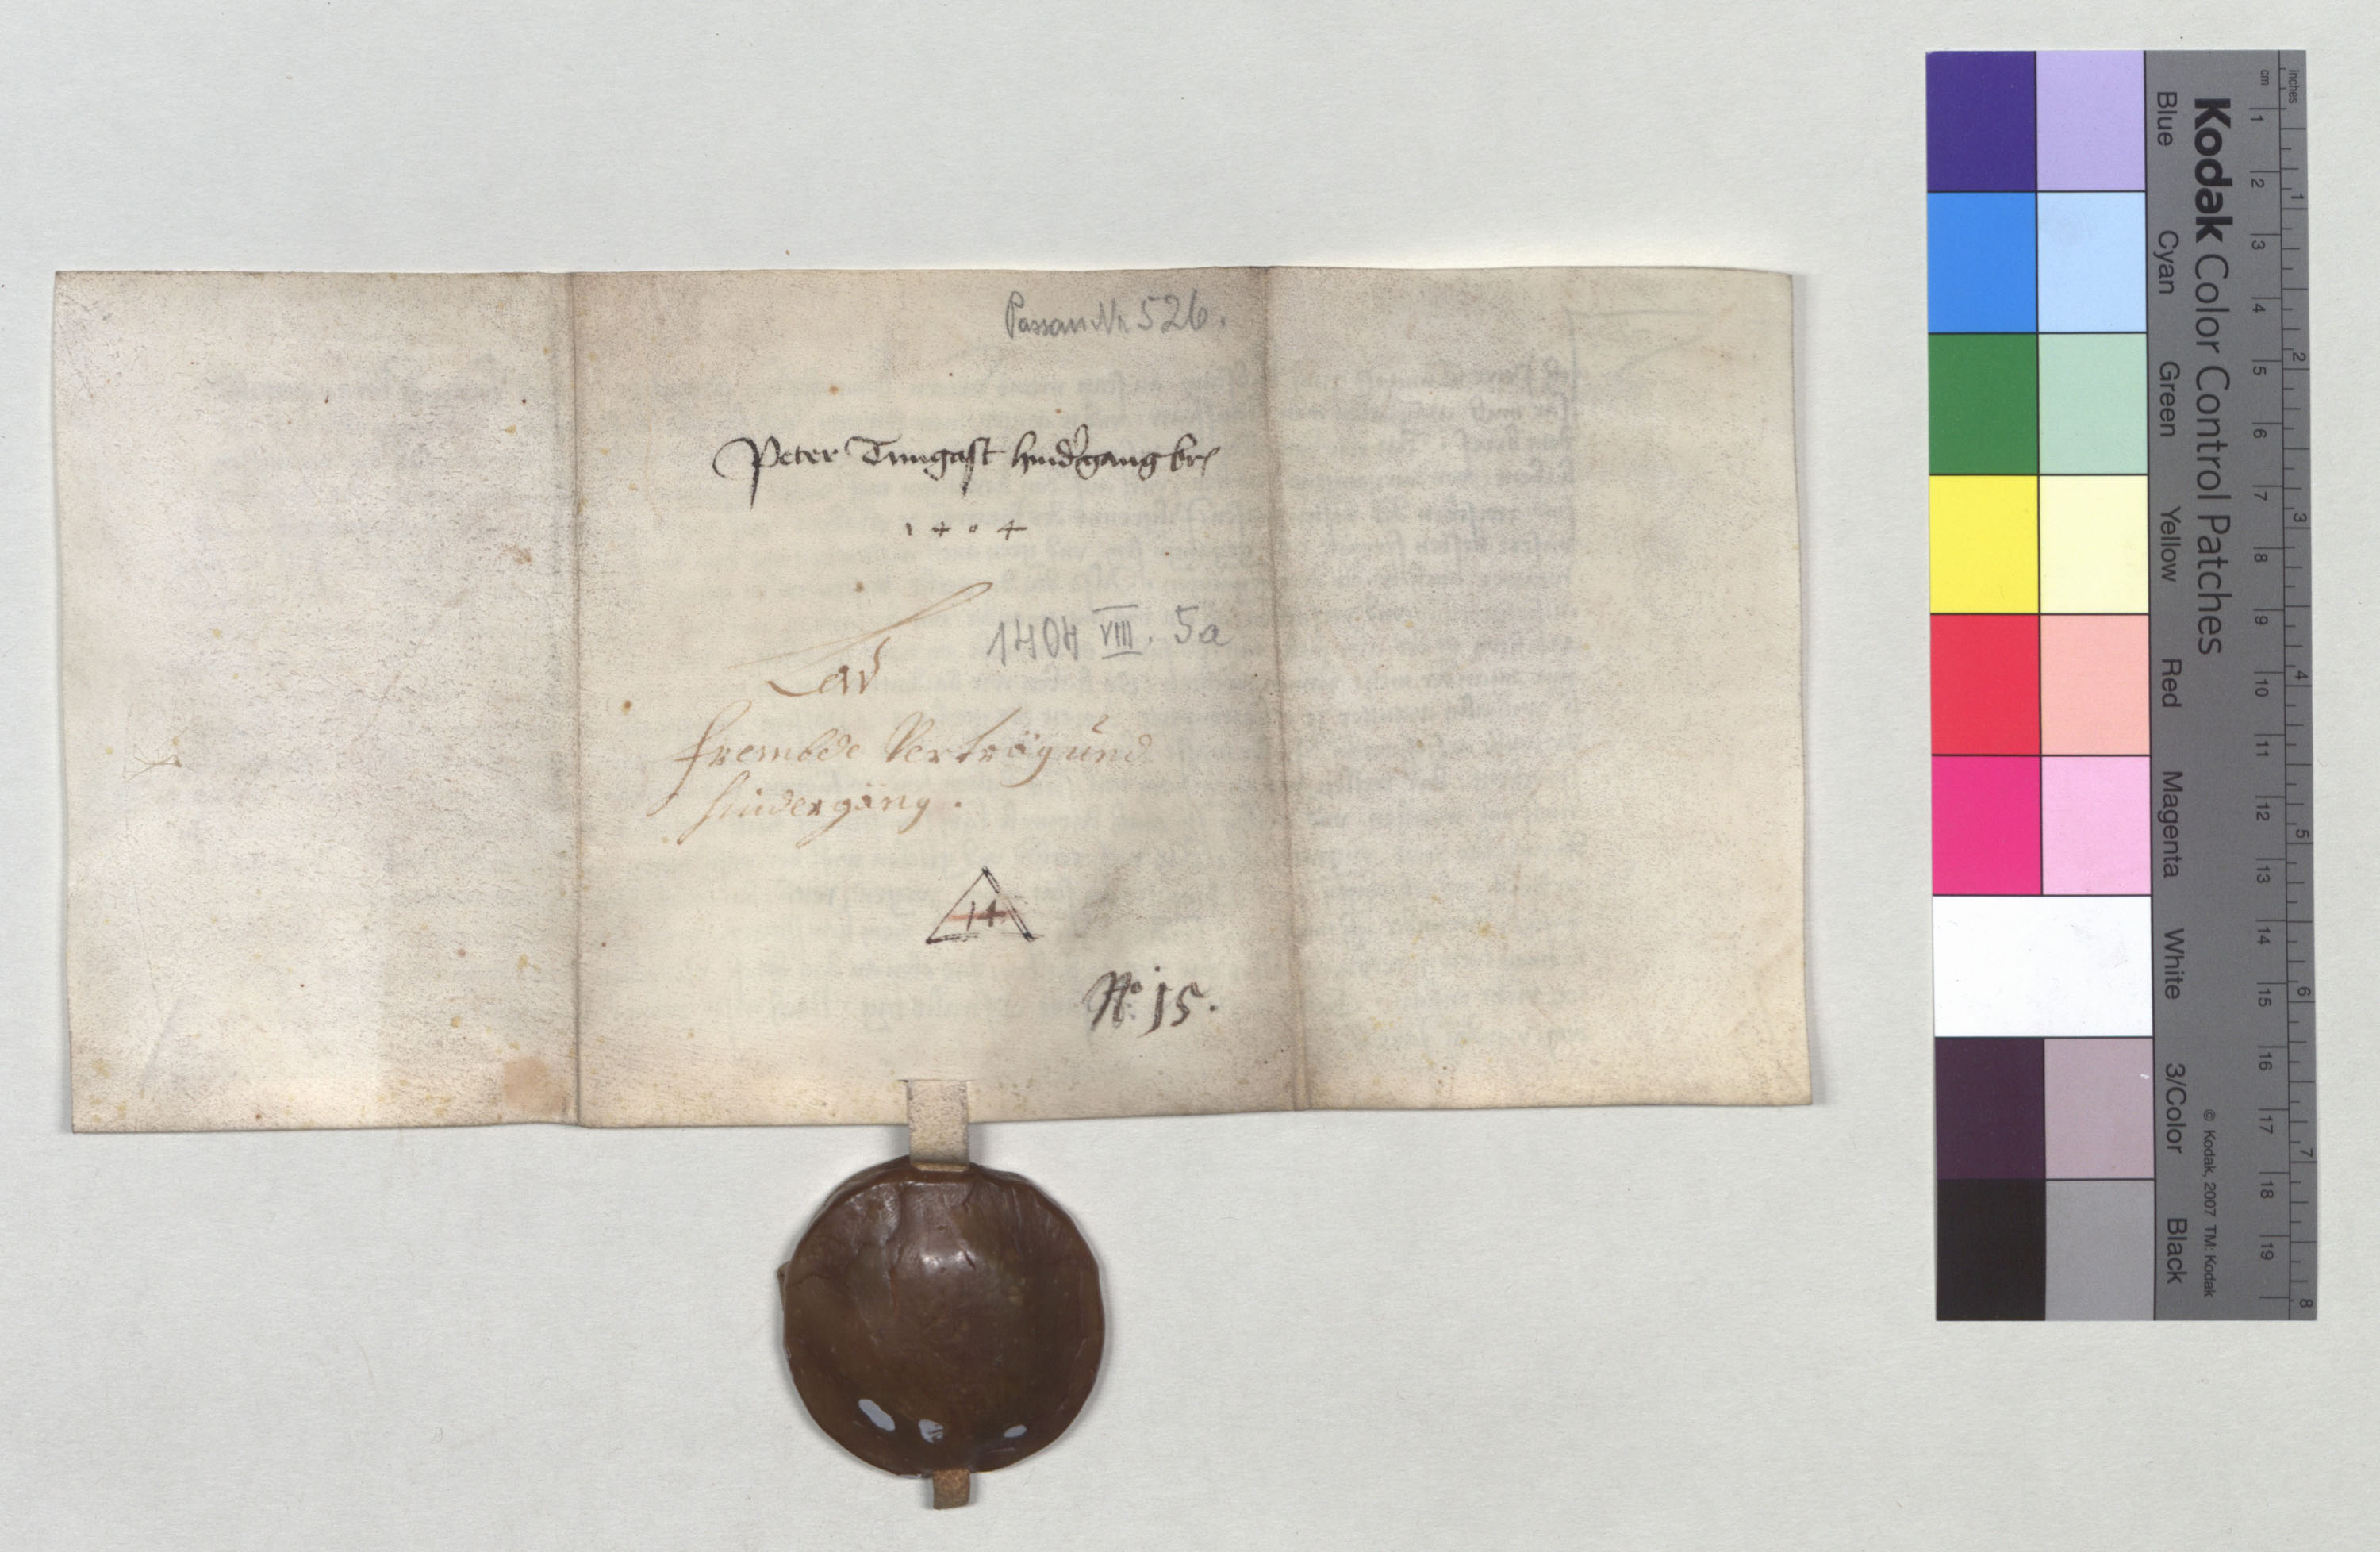 Passau Nr. 526.
Peter Tungast hind'gang br
1404
1404 VIII. 5a
Lad
frembde Verträg und
hindergäng.
14
No. 15.
Kodak Color Control Patches
Blue Cyan Green Yellow Red Magenta White 3/Color Black
© Kodak, 2007 TM: Kodak
cm 1 2 3 4 5 6 7 8 9 10 11 12 13 14 15 16 17 18 19
inches 1 2 3 4 5 6 7 8